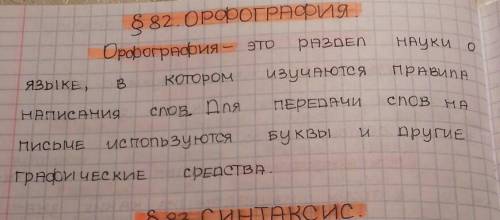 § 82. ОРФОГРАФИЯ.
Орфография – это раздел науки о
языке, в котором изучаются правила
написания слов. Для передачи слов на
письме используются буквы и другие
графические средства.
§ 83. СИНТАКСИС.